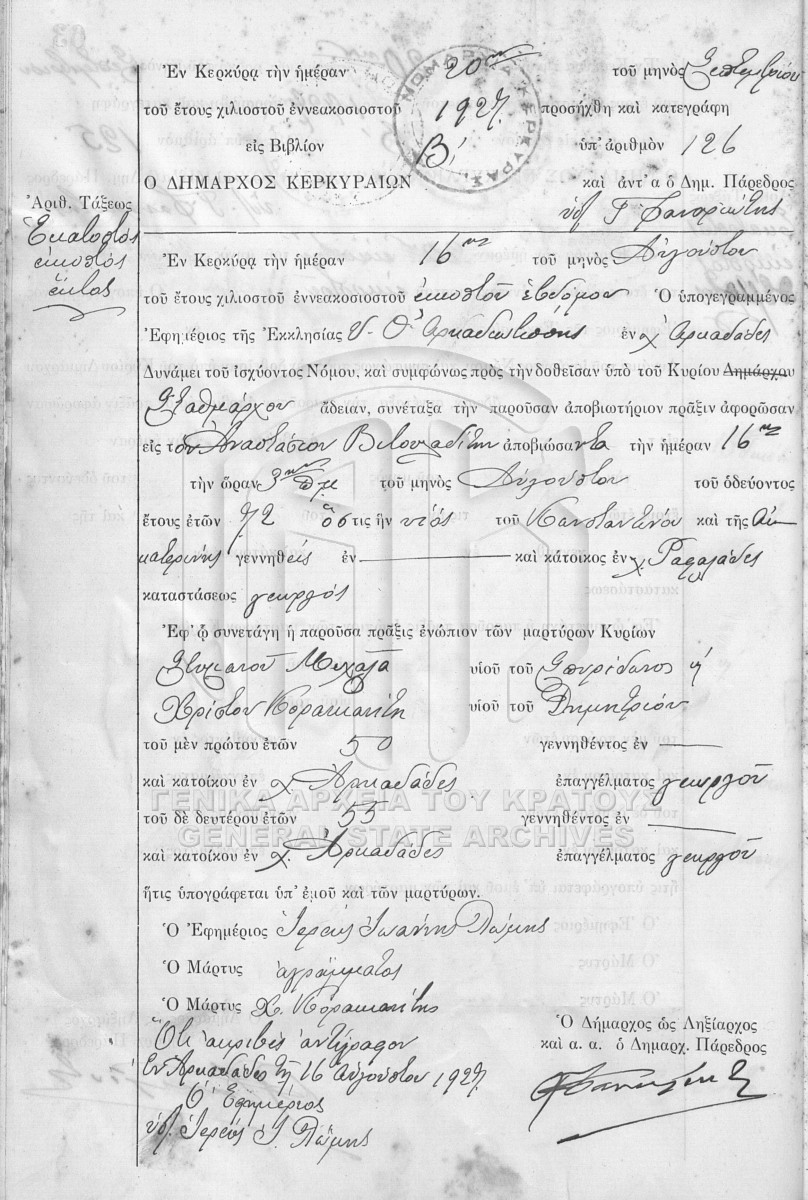 Ἐν Κερκύρᾳ τὴν ἡμέραν 20ην τοῦ μηνὸς Σεπτεμβρίου
τοῦ ἔτους χιλιοστοῦ ἐννεακοσιοστοῦ 1927 προσήχθη καὶ κατεγράφη
εἰς Βιβλίον Β' ὑπ' ἀριθμὸν 126
Ο ΔΗΜΑΡΧΟΣ ΚΕΡΚΥΡΑΙΩΝ καὶ ἀντ' α ὁ Δημ. Πάρεδρος
ΝΟΜΑΡΧΙΑ ΚΕΡΚΥΡΑΣ
Ἀριθ. Τάξεως
Ἑκατοστὸς
εἰκοστὸς
ἕκτος
Ἐν Κερκύρᾳ τὴν ἡμέραν 16ην τοῦ μηνὸς Αὐγούστου
τοῦ ἔτους χιλιοστοῦ ἐννεακοσιοστοῦ εἰκοστοῦ ἑβδόμου Ὁ ὑπογεγραμμένος
Ἐφημέριος τῆς Ἐκκλησίας Υ. Θ. Ἀρκαδιωτίσσης ἐν χ. Ἀρκαδάδες
Δυνάμει τοῦ ἰσχύοντος Νόμου, καὶ συμφώνως πρὸς τὴν δοθεῖσαν ὑπὸ τοῦ Κυρίου Δημάρχου
Σταθμάρχου ἄδειαν, συνέταξα τὴν παροῦσαν ἀποβιωτήριον πρᾶξιν ἀφορῶσαν
εἰς τὸν Ἀναστάσιον ἀποβιώσαντα τὴν ἡμέραν 16ην
τὴν ὥραν 3ην πμ τοῦ μηνὸς Αὐγούστου τοῦ ὁδεύοντος
ἔτους ἐτῶν 72 ὅστις ἦν υἱὸς τοῦ Κωνσταντίνου καὶ τῆς Αἰ
κατερίνης γεννηθεὶς ἐν καὶ κάτοικος ἐν χ. Ραχτάδες
καταστάσεως γεωργὸς
Ἐφ' ᾧ συνετάγη ἡ παροῦσα πρᾶξις ἐνώπιον τῶν μαρτύρων Κυρίων
Στυλιανοῦ Μιχαλᾶ υἱοῦ τοῦ Σπυρίδωνος ἢ
Χρίστου Κορακιανίτη υἱοῦ τοῦ Δημητρίου
τοῦ μὲν πρώτου ἐτῶν 50 γεννηθέντος ἐν
καὶ κατοίκου ἐν χ. Ἀρκαδάδες ἐπαγγέλματος γεωργοῦ
τοῦ δὲ δευτέρου ἐτῶν 55 γεννηθέντος ἐν
καὶ κατοίκου ἐν χ. Ἀρκαδάδες ἐπαγγέλματος γεωργοῦ
ἥτις ὑπογράφεται ὑπ' ἐμοῦ καὶ τῶν μαρτύρων.
Ὁ Ἐφημέριος Ἱερεὺς Ἰωάννης
Ὁ Μάρτυς ἀγράμματος
Ὁ Μάρτυς Χ. Κορακιανίτης
Ὅτι ἀκριβὲς ἀντίγραφον
Ἐν Ἀρκαδάδες τῇ 16 Αὐγούστου 1927
Ὁ Ἐφημέριος
Ἱερεὺς Ἰ.
Ὁ Δήμαρχος ὡς Ληξίαρχος
καὶ α. α. ὁ Δημαρχ. Πάρεδρος
ΓΕΝΙΚΑ ΑΡΧΕΙΑ ΤΟΥ ΚΡΑΤΟΥΣ
GENERAL STATE ARCHIVES